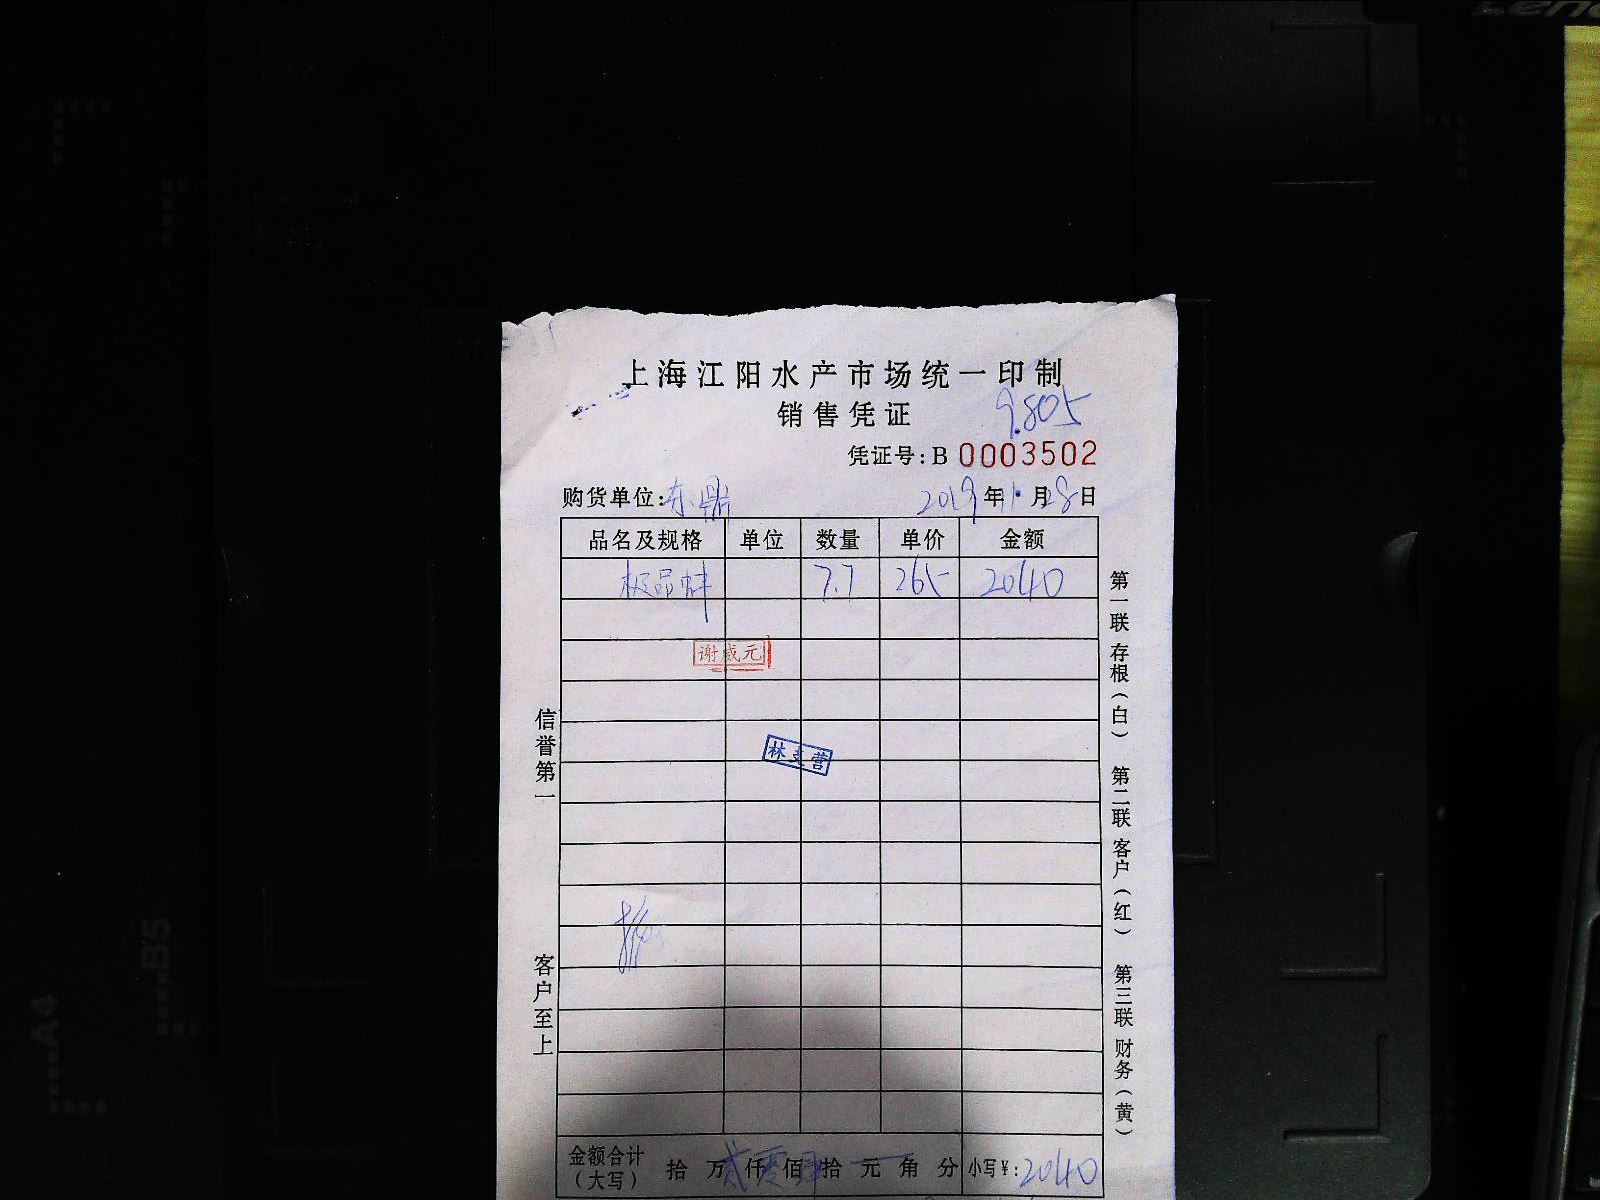 上海江阳水产市场统一印制
销售凭证
9.805
凭证号:B 0003502
购货单位:东鼎 2019年11月28日
品名及规格 单位 数量 单价 金额
极品蚌 7.7 265 2040
谢威元
林支营
信誉第一
客户至上
第一联 存根(白) 第二联 客户(红) 第三联 财务(黄)
金额合计(大写) 拾 万 贰 仟 零 佰 肆 拾 元 角 分 小写¥:2040
A4
B5